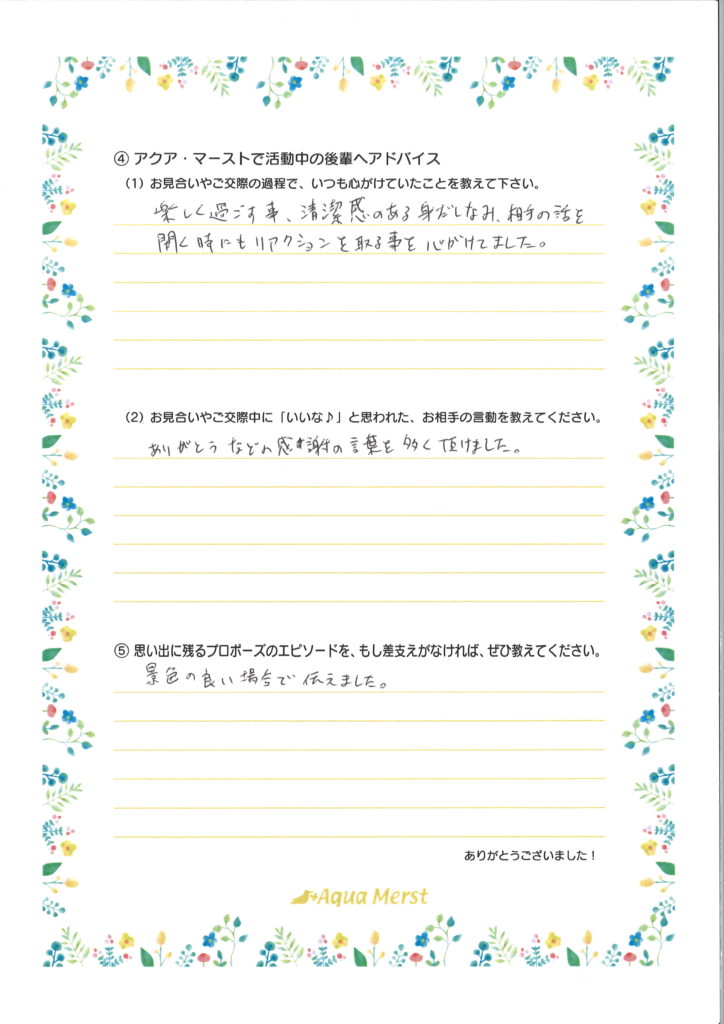 ④ アクア・マーストで活動中の後輩へアドバイス
（1）お見合いやご交際の過程で、いつも心がけていたことを教えて下さい。
楽しく過ごす事、清潔感のある身だしなみ、相手の話を
聞く時にもリアクションを取る事を心がけてました。
（2）お見合いやご交際中に「いいな♪」と思われた、お相手の言動を教えてください。
ありがとうなどの感謝の言葉を多く頂けました。
⑤ 思い出に残るプロポーズのエピソードを、もし差支えがなければ、ぜひ教えてください。
景色の良い場所で伝えました。
ありがとうございました！
Aqua Merst